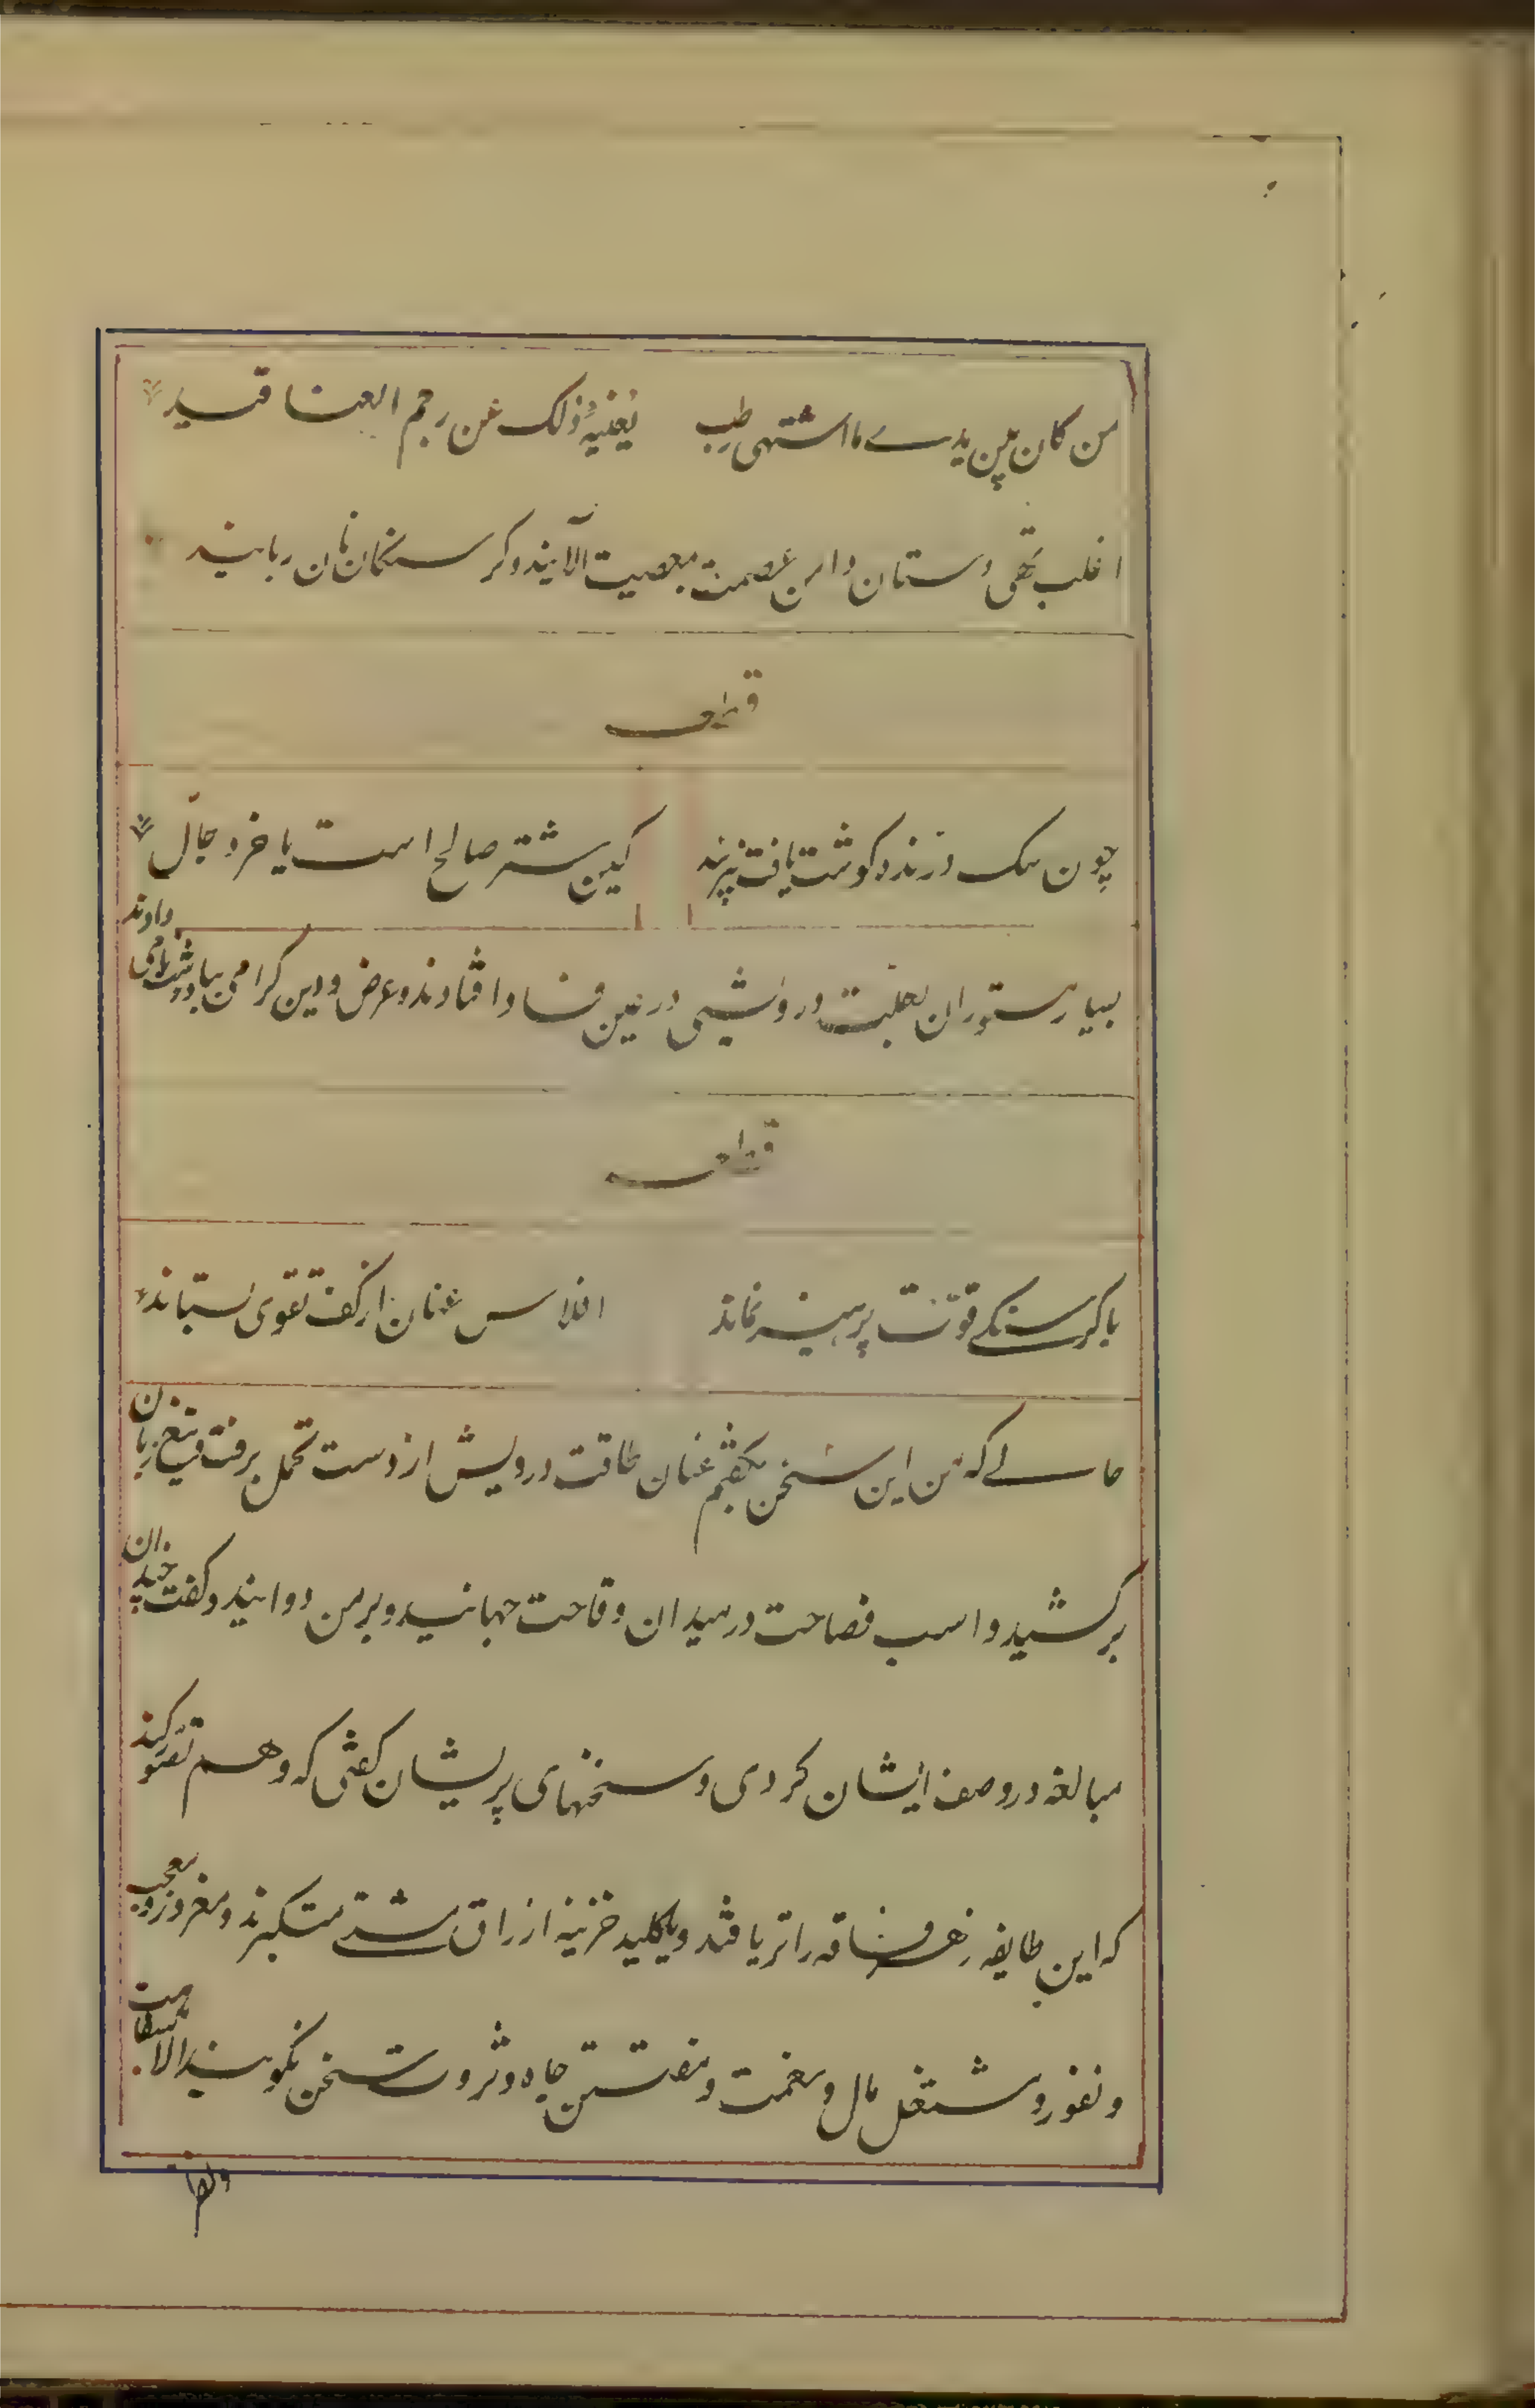 من کان بین یدیه ما اشتهی رطب یغنیه ذلک عن رجم العناقید
اغلب تهی دستان دامن عصمت بمعصیت آلایند و کرسنکان نان ربایند
قطعه
چون سک درنده کوشت یافت نپرسد کین شتر صالح است یا خر دجال
بسیار مستوران بعلت درویشی در عین فساد افتادند و عرض و دین کرامی بباد زشت نامی دادند
قطعه
با کرسنکے قوّت پرهیز نماند افلاس عنان از کف تقوی بستاند
حالے که من این سخن بکفتم عنان طاقت درویش از دست تحمل برفت و تیغ زبان
برکشید و اسب فصاحت در میدان وقاحت جهانید و بر من دوانید و کفت چندان
مبالغه در وصف ایشان کردی و سخنهای پریشان کفتی که وهم تصور کند
که این طایفه زهر فاقه را تریاقند و یا کلید خزینه ارزاق مشتے متکبرند و مغرور و معجب
و نفور و مشتغل مال و نعمت و مفتتن جاه و ثروت سخن نکویند الا بسفاهت
و نظر